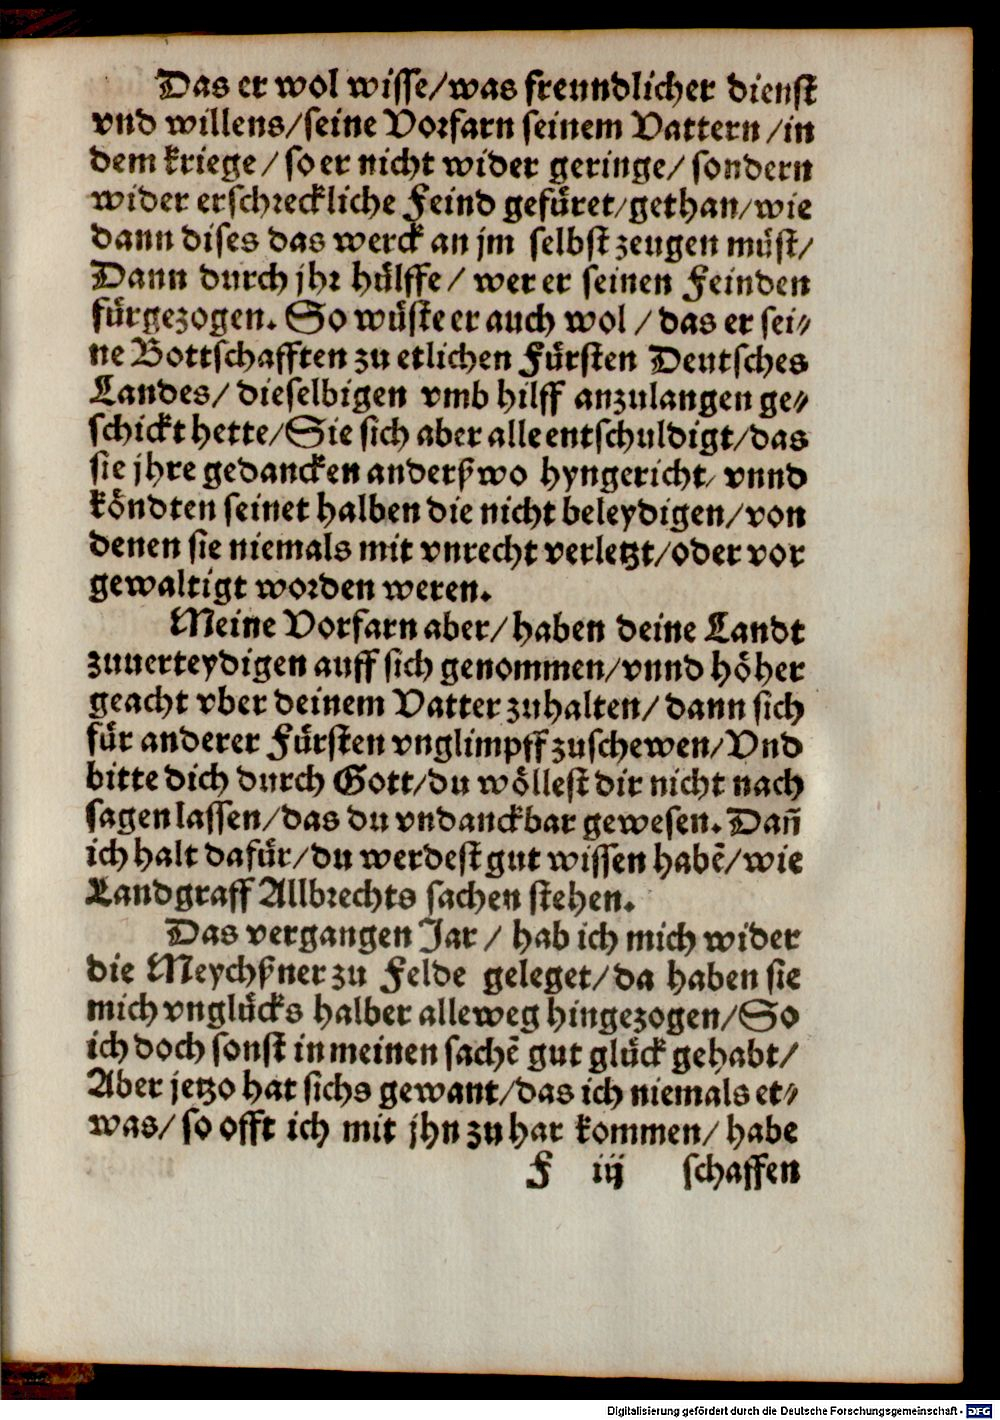 Das er wol wisse/was freundlicher dienst
vnd willens/seine Vorfarn seinem Vattern/in
dem kriege/so er nicht wider geringe/sondern
wider erschreckliche Feind gefüret/gethan/wie
dann dises das werck an jm selbst zeugen müst/
Dann durch jhr hülffe/wer er seinen Feinden
fürgezogen. So wüste er auch wol/das er sei⸗
ne Bottschafften zu etlichen Fürsten Deutsches
Landes/dieselbigen vmb hilff anzulangen ge⸗
schickt hette/Sie sich aber alle entschuldigt/das
sie jhre gedancken anderßwo hyngericht/vnnd
köndten seinet halben die nicht beleydigen/von
denen sie niemals mit vnrecht verletzt/oder vor
gewaltigt worden weren.
Meine Vorfarn aber/haben deine Landt
zuuerteydigen auff sich genommen/vnnd höher
geacht vber deinem Vatter zuhalten/dann sich
für anderer Fürsten vnglimpff zuschewen/Vnd
bitte dich durch Gott/du wöllest dir nicht nach
sagen lassen/das du vndanckbar gewesen. Dañ
ich halt dafür/du werdest gut wissen habẽ/wie
Landgraff Allbrechts sachen stehen.
Das vergangen Jar/hab ich mich wider
die Meychßner zu Felde geleget/da haben sie
mich vnglücks halber alleweg hingezogen/So
ich doch sonst in meinen sachẽ gut glück gehabt/
Aber jetzo hat sichs gewant/das ich niemals et⸗
was/so offt ich mit jhn zu har kommen/habe
F iij schaffen
Digitalisierung gefördert durch die Deutsche Forschungsgemeinschaft - DFG